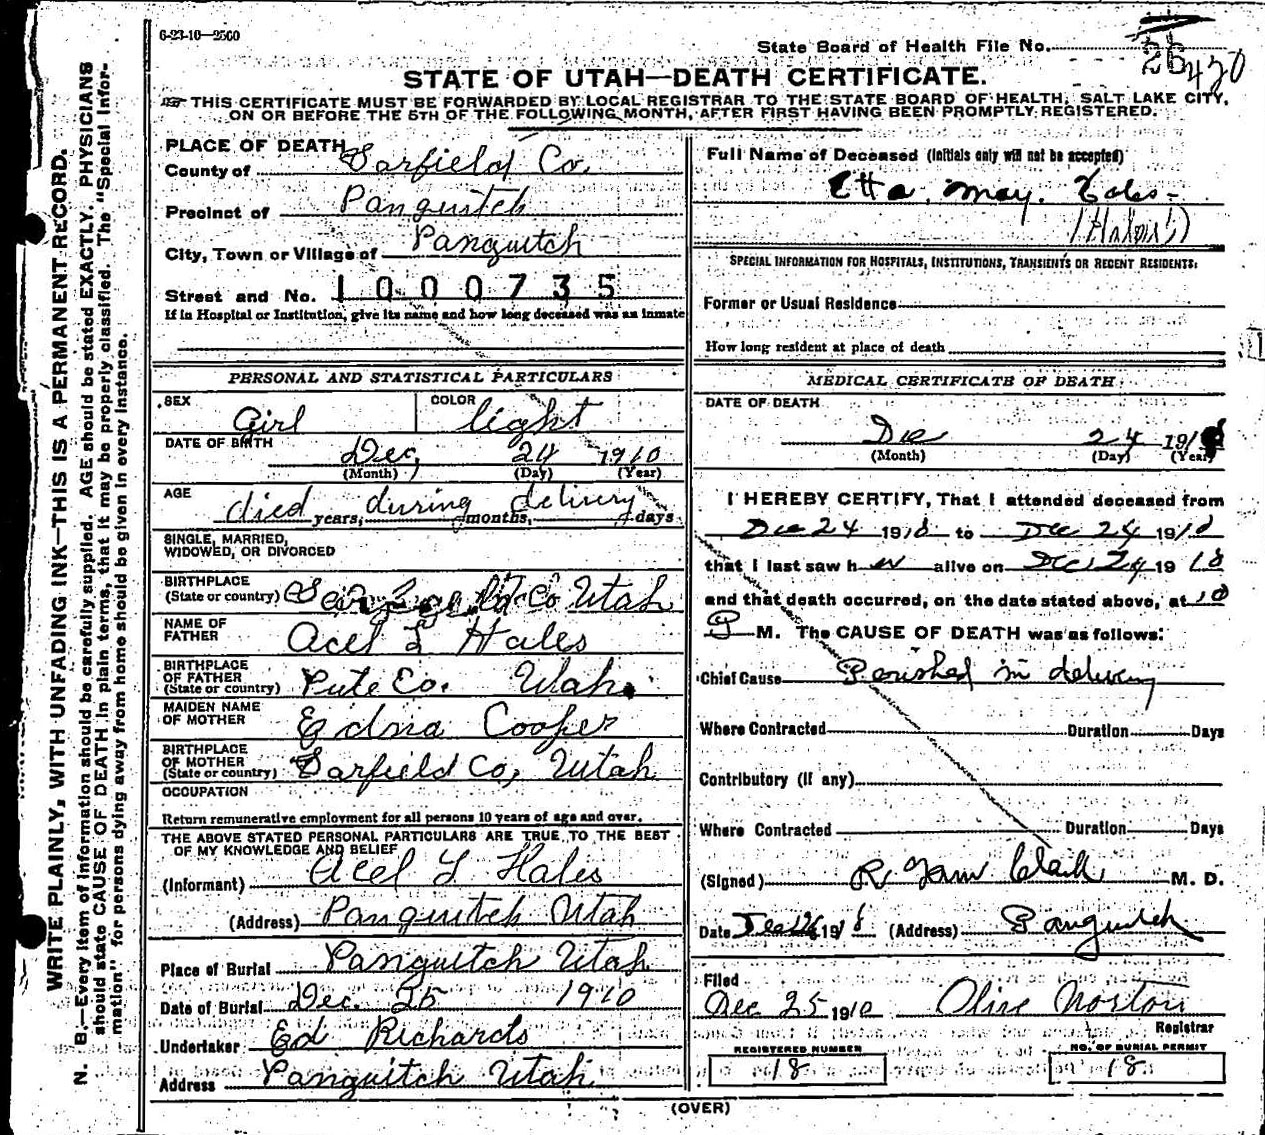 6-23-10—2500
State Board of Health File No.
26 420
STATE OF UTAH—DEATH CERTIFICATE.
THIS CERTIFICATE MUST BE FORWARDED BY LOCAL REGISTRAR TO THE STATE BOARD OF HEALTH, SALT LAKE CITY,
ON OR BEFORE THE 5TH OF THE FOLLOWING MONTH, AFTER FIRST HAVING BEEN PROMPTLY REGISTERED.
WRITE PLAINLY, WITH UNFADING INK—THIS IS A PERMANENT RECORD.
N. B.—Every item of information should be carefully supplied. AGE should be stated EXACTLY. PHYSICIANS
should state CAUSE OF DEATH in plain terms, that it may be properly classified. The "Special Infor-
mation" for persons dying away from home should be given in every instance.
PLACE OF DEATH
County of Garfield Co.
Precinct of Panguitch
City, Town or Village of Panguitch
Street and No. 1000735
If in Hospital or Institution, give its name and how long deceased was an inmate
PERSONAL AND STATISTICAL PARTICULARS
SEX Girl COLOR light
DATE OF BIRTH Dec, 24 1910
(Month) (Day) (Year)
AGE died years, during months, delivery days
SINGLE, MARRIED,
WIDOWED, OR DIVORCED
BIRTHPLACE
(State or country) Garfield Co Utah
NAME OF
FATHER Acel L Hales
BIRTHPLACE
OF FATHER
(State or country) Piute Co. Utah.
MAIDEN NAME
OF MOTHER Edna Cooper
BIRTHPLACE
OF MOTHER
(State or country) Garfield Co, Utah
OCCUPATION
Return remunerative employment for all persons 10 years of age and over.
THE ABOVE STATED PERSONAL PARTICULARS ARE TRUE TO THE BEST
OF MY KNOWLEDGE AND BELIEF
(Informant) Acel L Hales
(Address) Panguitch Utah
Place of Burial Panguitch Utah
Date of Burial Dec. 25 1910
Undertaker Ed Richards
Address Panguitch Utah
Full Name of Deceased (Initials only will not be accepted)
Etta May
(Hales)
SPECIAL INFORMATION FOR HOSPITALS, INSTITUTIONS, TRANSIENTS OR RECENT RESIDENTS:
Former or Usual Residence
How long resident at place of death
MEDICAL CERTIFICATE OF DEATH
DATE OF DEATH
Dec 24 191
(Month) (Day) (Year)
I HEREBY CERTIFY, That I attended deceased from
Dec 24 1910 to Dec 24 1910
that I last saw her alive on Dec 24 1910
and that death occurred, on the date stated above, at 10
P M. The CAUSE OF DEATH was as follows:
Chief Cause Perished in delivery
Where Contracted Duration Days
Contributory (if any)
Where Contracted Duration Days
(Signed) R. Clark M. D.
Date Dec 26 1910 (Address) Panguitch
Filed
Dec 25 1910 Olive Norton
Registrar
REGISTERED NUMBER
18
NO. OF BURIAL PERMIT
18
(OVER)